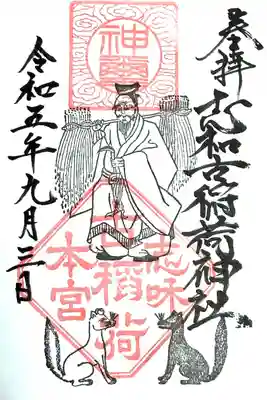 奉拝
志和古稲荷神社
古稲荷
本宮
令和五年九月三日